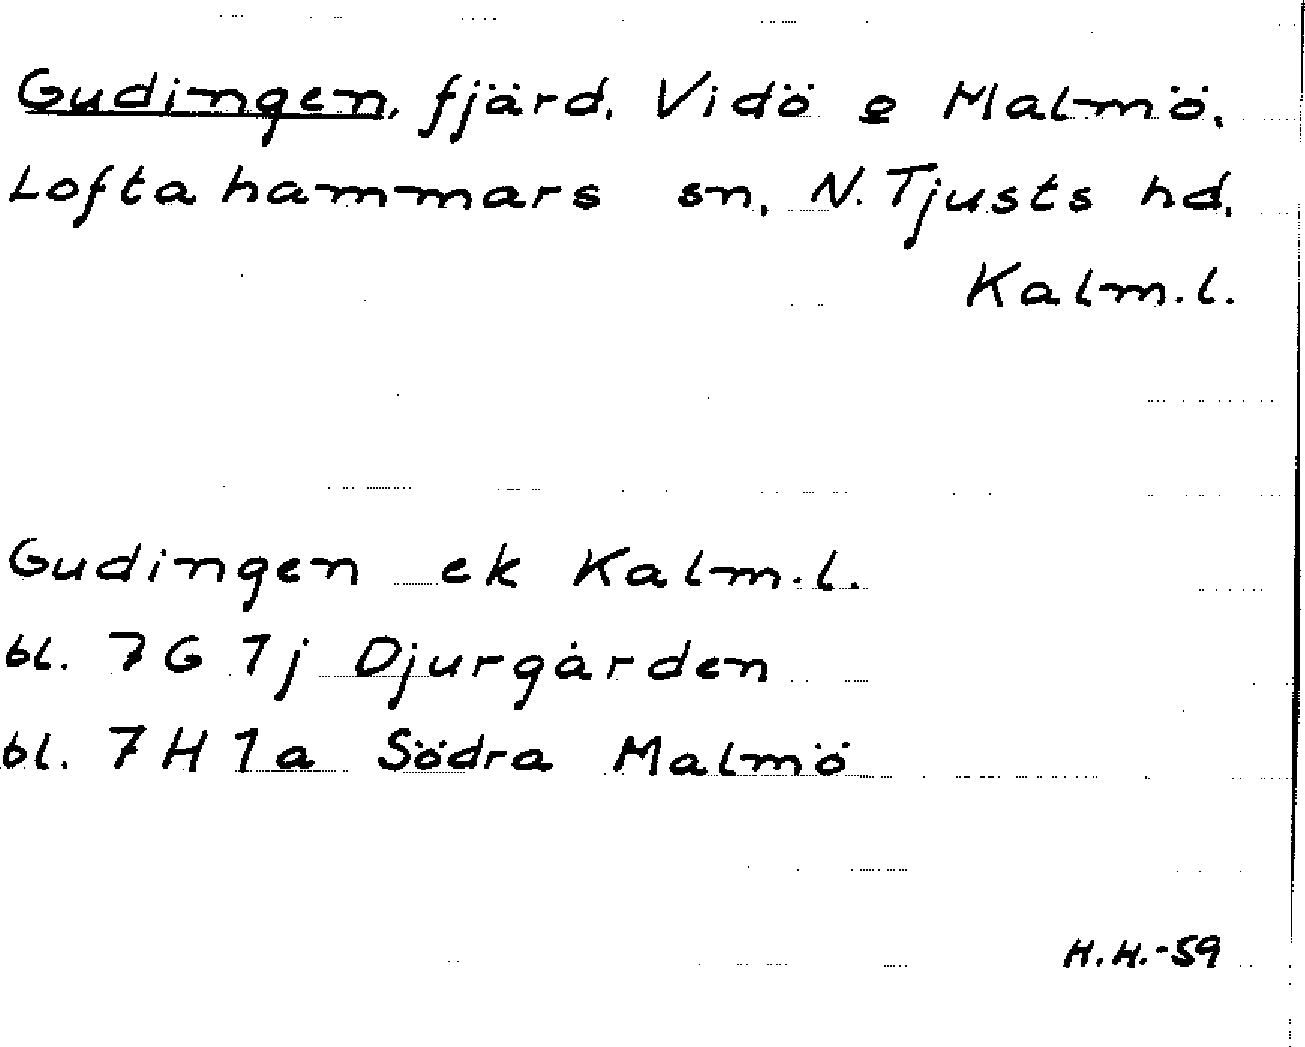 Gudingen, fjärd, Vidö o Malmö,
Loftahammars sn, N. Tjusts hd,
Kalm.l.
Gudingen ek Kalm.l.
bl. 7G 1j Djurgården
bl. 7H 1a Södra Malmö
H.H.-59